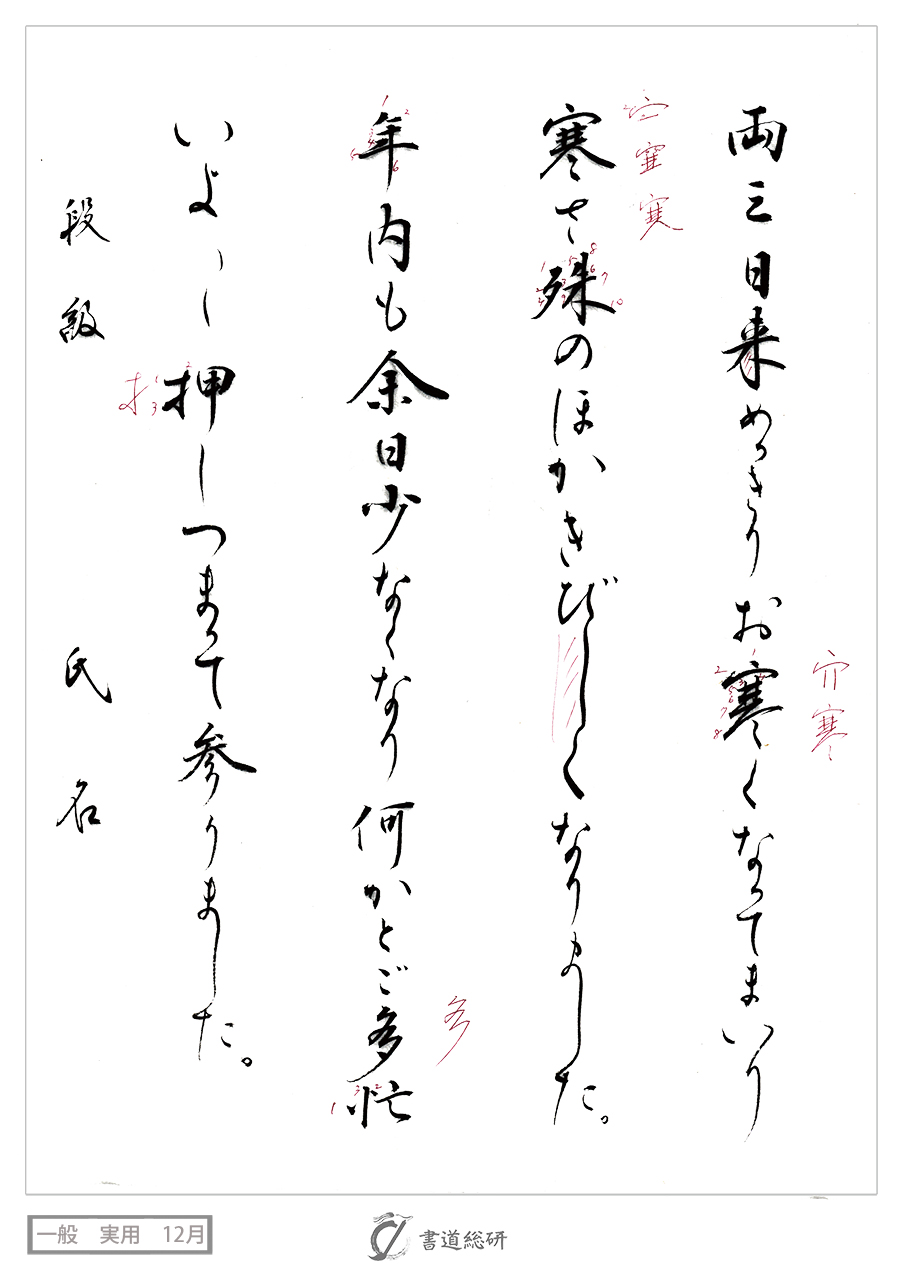 両三日来めっきりお寒くなってまいり
寒さ殊のほかきびしくなりました。
年内も余日少なくなり何かとご多忙
いよ〱押しつまって参りました。
段級 氏名
一般 実用 12月
書道総研